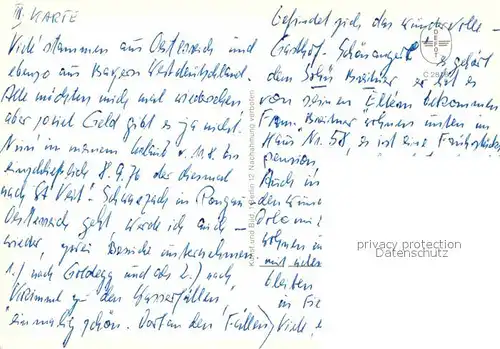 III. KARTE
Viele stammen aus Oesterreich und
ebenso aus Bayern Westdeutschland.
Alle möchten mich mal wiedersehen
aber soviel Geld gibt es ja nicht.
Nun in meinem Urlaub v. 11.8. bis
einschließlich 8.9.76 der diesmal
nach St Veit - Schwarzach im Pongau
Oesterreich geht, werde ich auch -
wieder, zwei Besuche unternehmen
1.) nach Goldegg und als 2.) nach
Krimml zu den Wasserfällen,
einmalig schön. Dort an den Fällen
befindet sich das wundervolle -
Gasthof - Schönangerl es gehört
dem Sohn Breitner er hat es
von seinen Eltern bekommen
Fam. Breitner wohnen unten im
Haus Nr. 58, es ist eine Frühstücks
pension.
Auch in
den
wohnen in
mit
bleiben
in
Viele,
Kunst und Bild, Berlin 12 Nachahmung verboten
privacy protection
Datenschutz